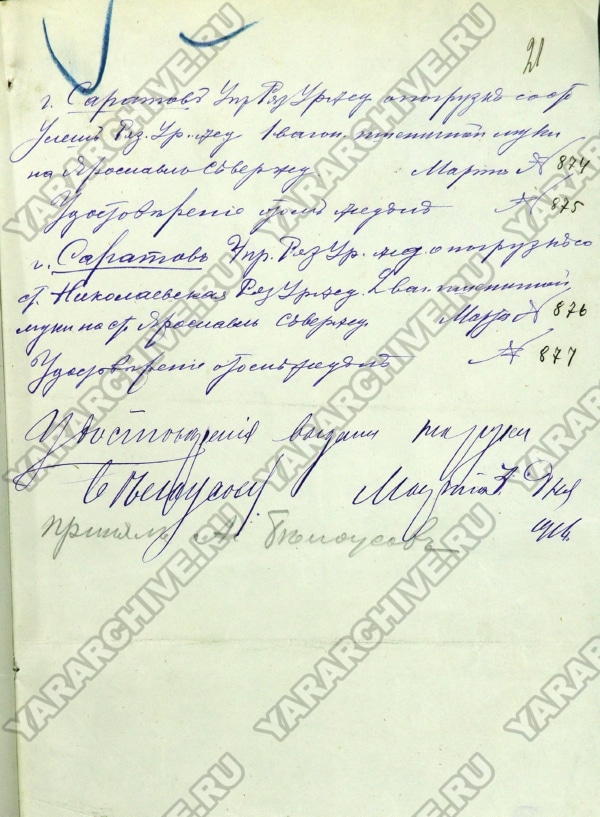 21
г. Саратовъ Упр Ряз Ур жд о погрузкѣ со ст
Ряз. Ур. жд 1 вагон. пшеничной муки
на Ярославль Сѣверн жд. Марта № 874
Удостовѣреніе о томъ № 875
г. Саратовъ Упр. Ряз Ур. жд о погрузкѣ со
ст. Николаевская Ряз Ур жд. 2 ваг. пшеничной
муки на ст Ярославль Сѣверн жд. Марта № 876
Удостовѣреніе о томъ № 877
Удостовѣренія выданы на руки
Марта 7 дня
принялъ А. Бѣлоусовъ
1916.
YARARCHIVE.RU